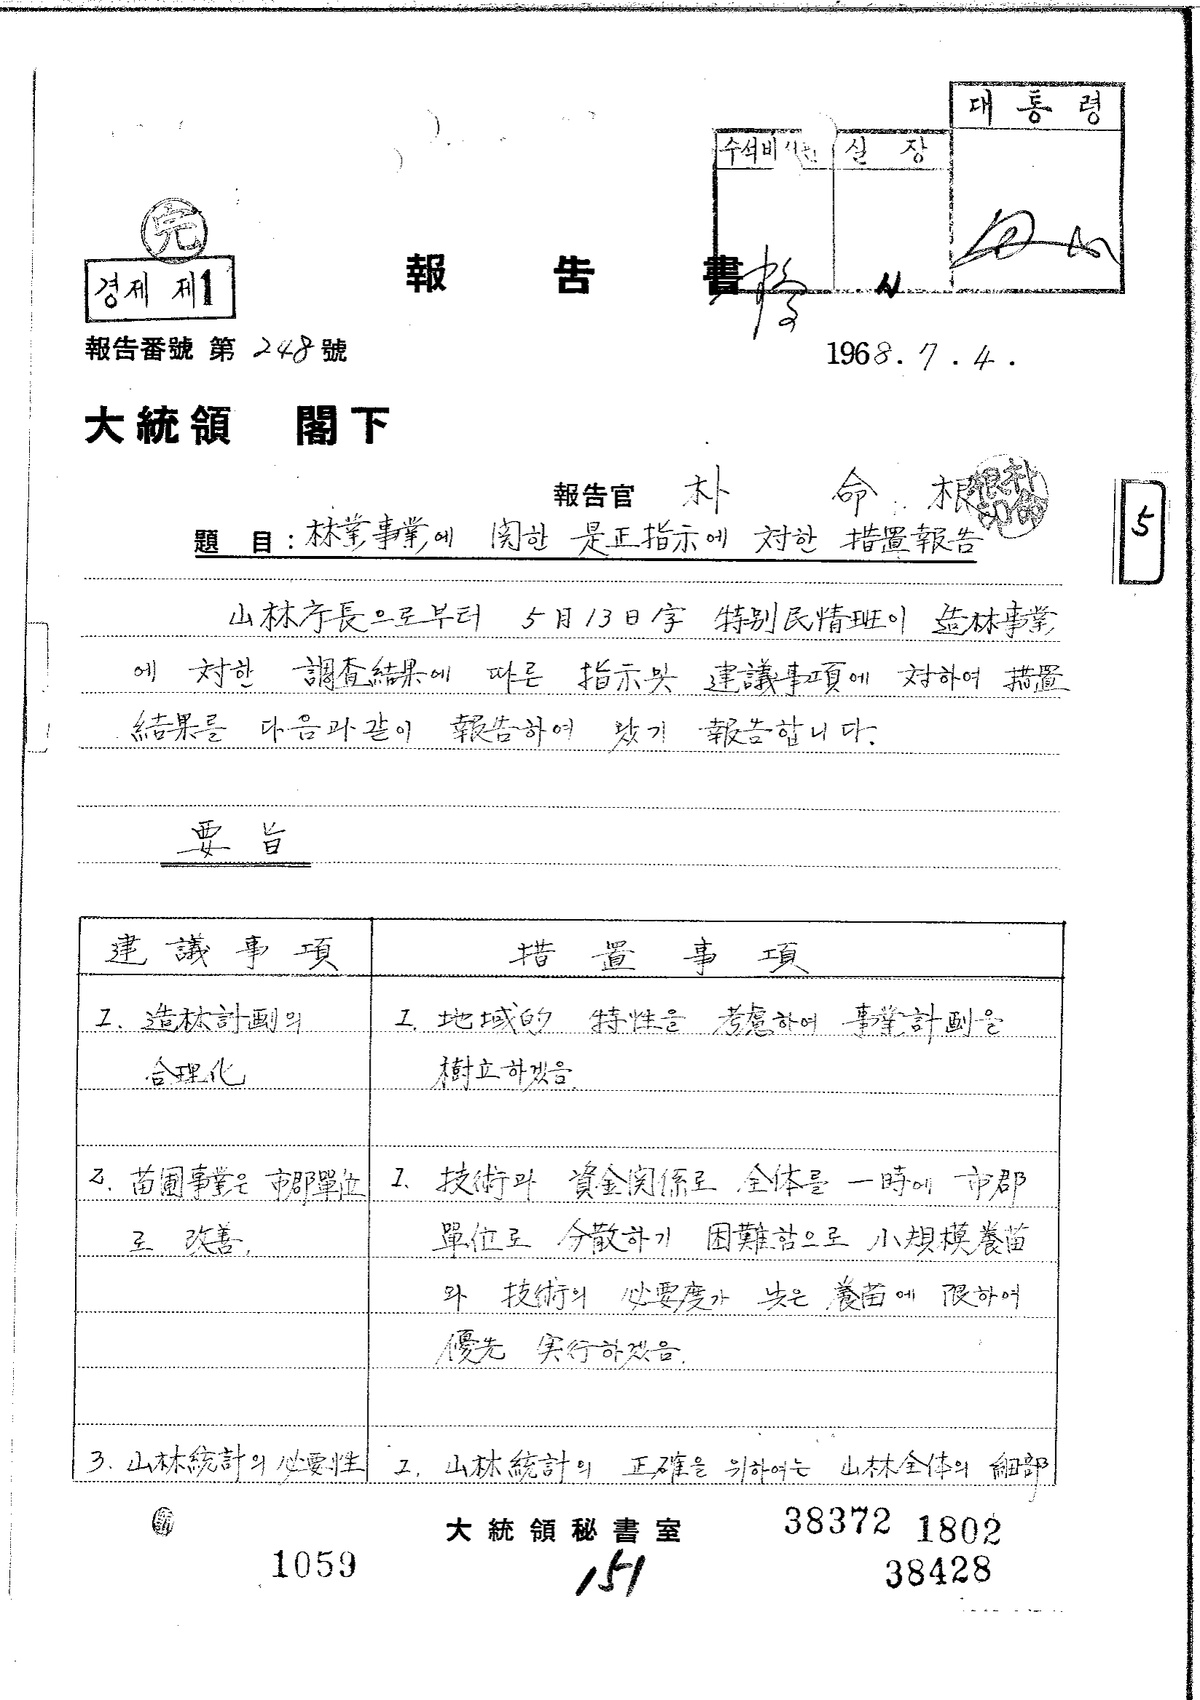 대통령
실장
完
경제 제1
報告書
報告番號 第 248 號
1968. 7. 4.
大統領 閣下
報告官 朴 命 根
題 目 : 林業事業에 関한 是正指示에 対한 措置報告
5
山林庁長으로부터 5月13日字 特別民情班이 造林事業
에 対한 調査結果에 따른 指示및 建議事項에 対하여 措置
結果를 다음과같이 報告하여 왔기 報告합니다.
要旨
建議事項 措置事項
1. 造林計劃의 1. 地域的 特性을 考慮하여 事業計劃을
合理化 樹立하겠음.
2. 苗圃事業은 市郡單位 1. 技術과 資金関係로 全体를 一時에 市郡
로 改善. 單位로 分散하기 困難함으로 小規模養苗
와 技術의 必要度가 낮은 養苗에 限하여
優先 実行하겠음.
3. 山林統計의 必要性 1. 山林統計의 正確을 위하여는 山林全体의 細部
大統領秘書室
38372 1802
1059 151 38428